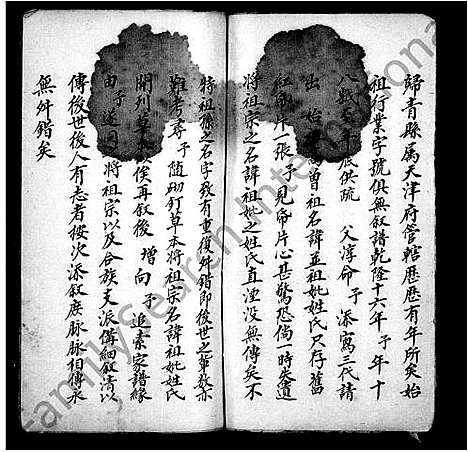 歸青縣属天津府管轄歷歷有年所矣始
祖行業字號俱無叙譜乾隆十六年予年十
八歲 年底供疏 父淳命予添寫三代請
出始 高曾祖名諱並祖妣姓氏只存舊
紅 片一張予見帋片心甚驚恐倘一時失遺
將祖宗之名諱祖妣之姓氏直湮没無傳矣不
特祖孫之名字致有重復舛錯即後世之輩数亦
難考尋予随册釘草本將祖宗名諱祖妣姓氏
開列草 以俟再叙後 增向予追索家譜緣
由予遂 將祖宗以及合族支派備細叙清以
傳後世後人有志者按次添叙庶脉脉相傳永
無舛錯矣
FamilySearch International